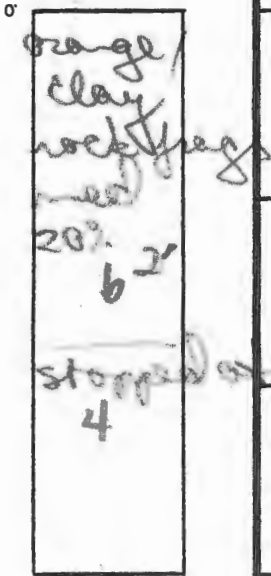 0'
orange
clay
rock frags
mixed
20%
6 2'
stopped on
4